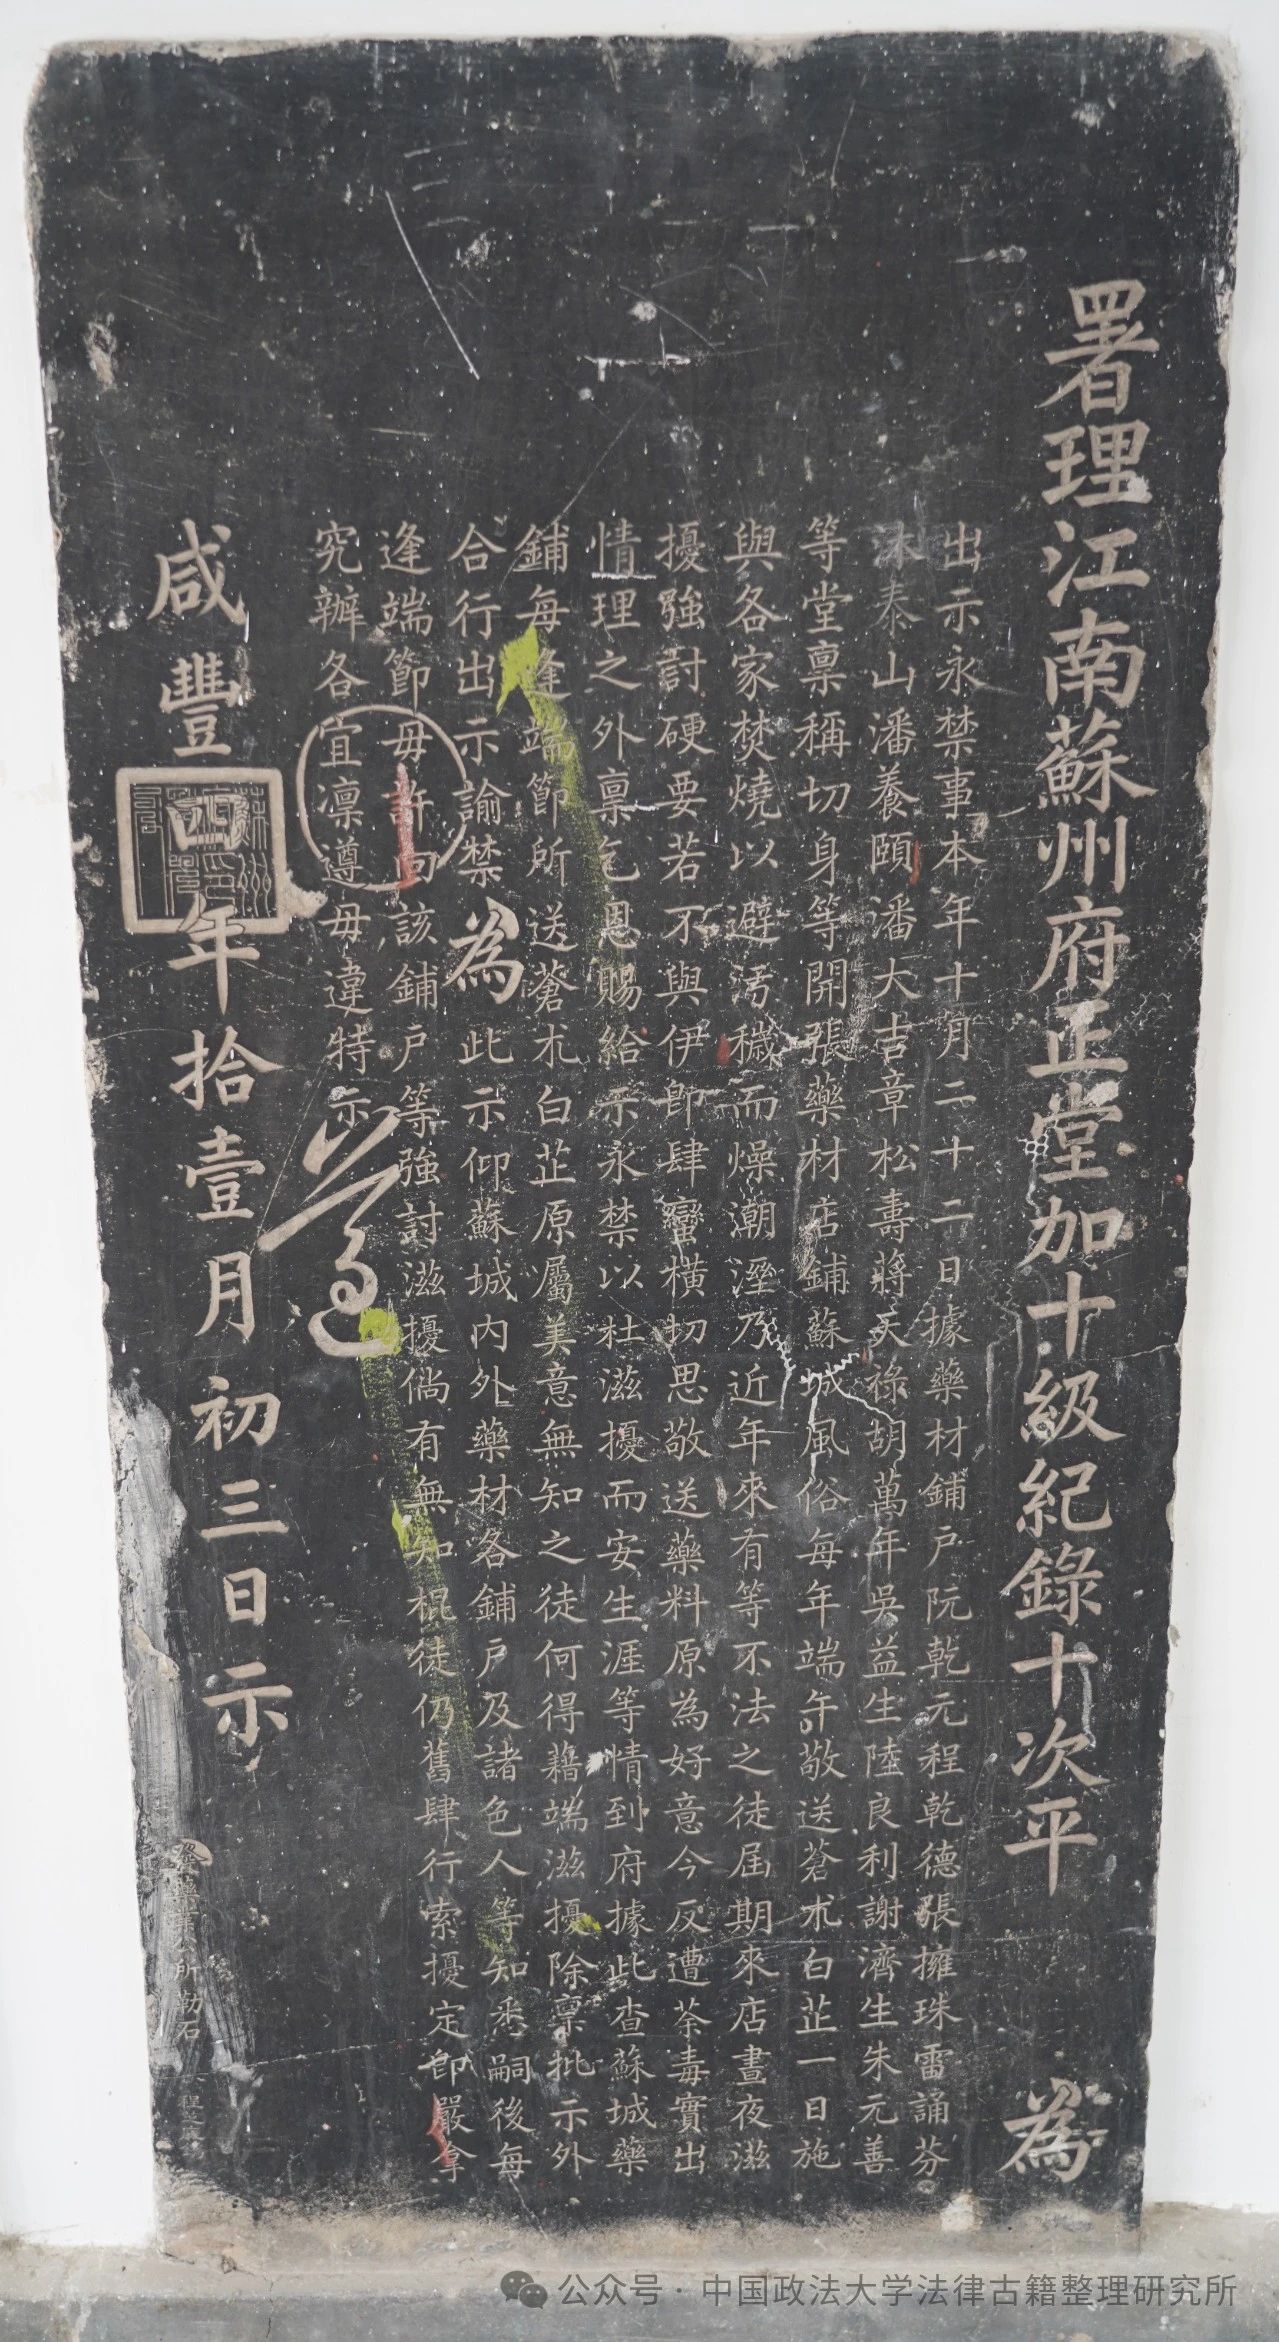 署理江南蘇州府正堂加十級紀錄十次平為
出示永禁事本年十月二十二日據藥材鋪戶阮乾元程乾德張擁珠雷誦芬
沐泰山潘養頤潘大吉章松壽蔣天祿胡萬年吳益生陸良利謝濟生朱元善
等堂稟稱切身等開張藥材店鋪蘇城風俗每年端午敬送蒼朮白芷一日施
與各家焚燒以避汚穢而燥潮溼乃近年來有等不法之徒屆期來店晝夜滋
擾強討硬要若不與伊即肆蠻橫切思敬送藥料原為好意今反遭荼毒實出
情理之外稟乞恩賜給示永禁以杜滋擾而安生涯等情到府據此查蘇城藥
鋪每逢端節所送蒼朮白芷原屬美意無知之徒何得藉端滋擾除稟批示外
合行出示諭禁為此示仰蘇城內外藥材各鋪戶及諸色人等知悉嗣後每
逢端節毋許向該鋪戶等強討滋擾倘有無知棍徒仍舊肆行索擾定即嚴拿
究辦各宜凜遵毋違特示
遵
咸豐七年拾壹月初三日示
發藥業公所勒石
公众号·中国政法大学法律古籍整理研究所